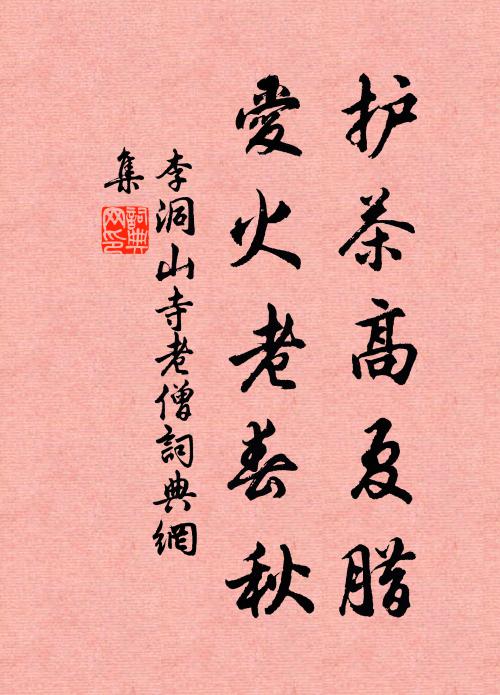 护茶高夏腊
愛火老春秋
李洞山寺老僧詞典網
集
詞典
网印